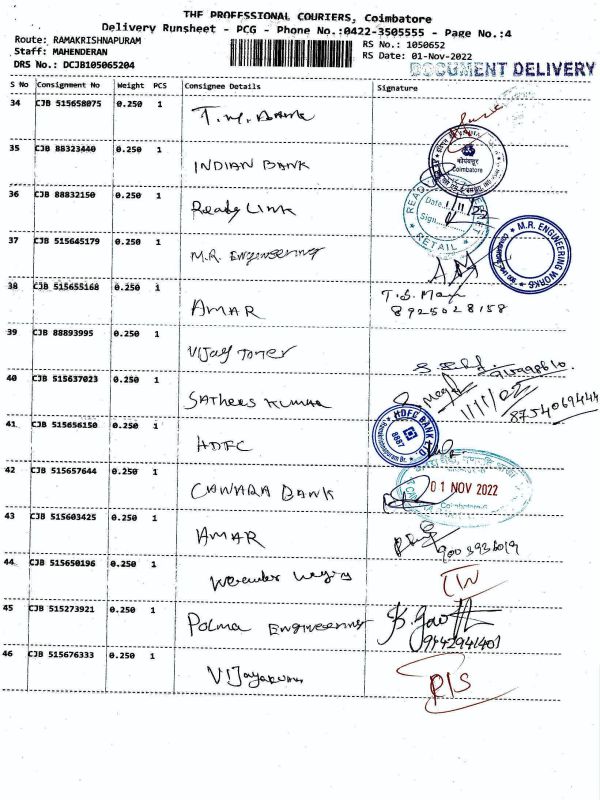 THE PROFESSIONAL COURIERS, Coimbatore
Delivery Runsheet - PCG - Phone No.:0422-3505555 - Page No.:4
Route: RAMAKRISHNAPURAM
RS No.: 1050652
Staff: MAHENDERAN
RS Date: 01-Nov-2022
DRS No.: DCJB105065204
DOCUMENT DELIVERY
S No Consignment No Weight PCS Consignee Details Signature
34 CJB 515658075 0.250 1 T.M. BANK
35 CJB 88323440 0.250 1 INDIAN BANK
कोयंबत्तूर
Coimbatore
36 CJB 88832150 0.250 1 Ready Link
READY
Date 1/11/22
Sign
★ RETAIL ★
37 CJB 515645179 0.250 1 M.R. Engineering
★ M.R. ENGINEERING WORKS ★
38 CJB 515655168 0.250 1 AMAR
8925028158
39 CJB 88893995 0.250 1 Vijay Toner
40 CJB 515637023 0.250 1 SATHEES KUMAR
1/11/22
8754069444
41 CJB 515656150 0.250 1 HDFC
HDFC BANK LTD
8887
42 CJB 515657644 0.250 1 CANARA BANK
01 NOV 2022
Coimbatore
43 CJB 515603425 0.250 1 AMAR
9003936019
44 CJB 515650196 0.250 1
TW
45 CJB 515273921 0.250 1 POLMA ENGINEERING
9942941401
46 CJB 515676333 0.250 1 VIJayakumar
P/S